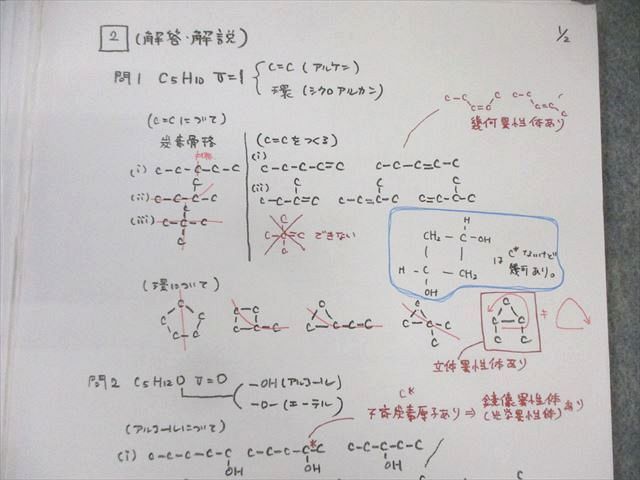 2 (解答・解説)
1/2
問1 C5H10 U=1 C=C (アルケン)
環 (シクロアルカン)
幾何異性体あり
(C=Cについて)
炭素骨格
(C=Cをつくる)
(i) C-C-C-C-C
(i) C-C-C-C=C C-C-C=C-C
(ii)
(ii) C-C-C=C C-C=C-C C=C-C-C
(iii)
できない
H
CH2-C-OH
H-C-CH2
OH
は C*ないけど
幾何あり。
(環について)
立体異性体あり
問2 C5H12O U=0 -OH (アルコール)
-O- (エーテル)
C*
不斉炭素原子あり⇒鏡像異性体
(光学異性体)あり
(アルコールについて)
(i) C-C-C-C-C C-C-C-C-C* C-C-C-C-C
OH OH OH